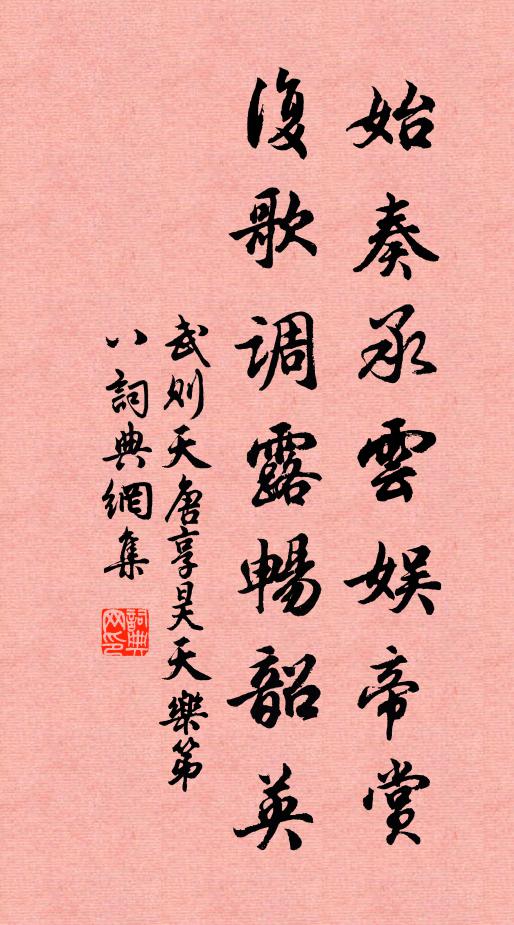 始奏承雲娛帝賞
復歌调露暢韶英
武则天唐享昊天樂第
八詞典網集
詞典
网印